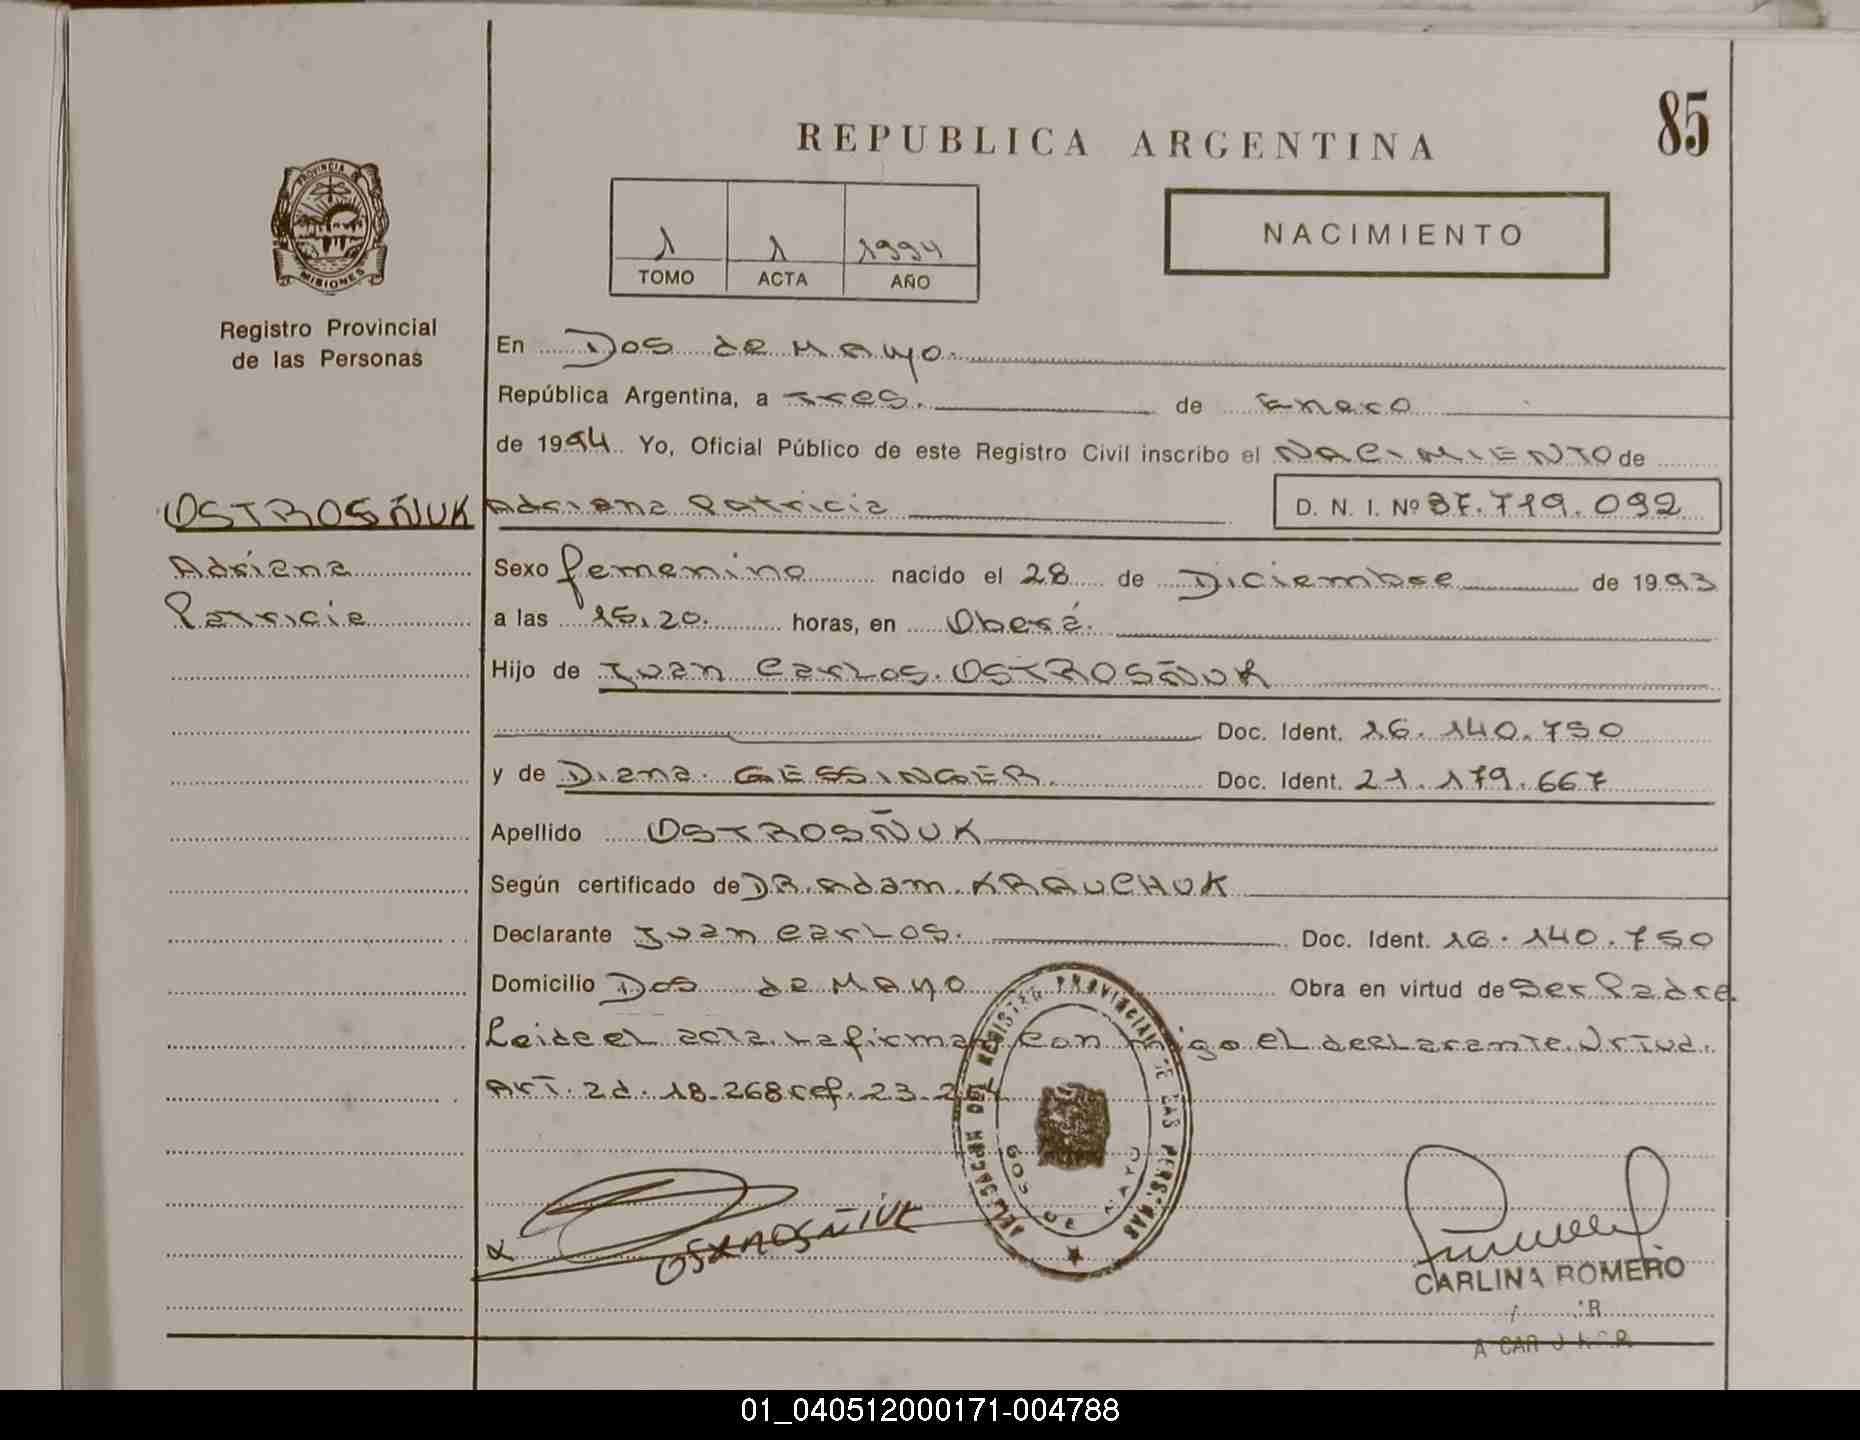 85
REPUBLICA ARGENTINA
PROVINCIA DE
MISIONES
Registro Provincial
de las Personas
1 1 1994
TOMO ACTA AÑO
NACIMIENTO
En Dos de Mayo.
República Argentina, a tres. de Enero
de 1994. Yo, Oficial Público de este Registro Civil inscribo el NACIMIENTO de
OSTROSÑUK Adriana Patricia D. N. I. Nº 37.719.092
Adriana
Patricia
Sexo femenino nacido el 28 de Diciembre de 1993
a las 15.20. horas, en Oberá.
Hijo de Juan Carlos OSTROSÑUK
Doc. Ident. 16.140.750
y de Diana GESSINGER. Doc. Ident. 21.179.667
Apellido OSTROSÑUK
Según certificado de DR. Adam KRAUCHUK
Declarante Juan Carlos. Doc. Ident. 16.140.750
Domicilio Dos de Mayo Obra en virtud de Ser Padre
Leide el acta La firma con migo el declarante
Art. 2d. 18.268 ref. 23-
REGISTRO PROVINCIAL DE LAS PERSONAS
DOS DE MAYO
OSTROSÑIUK
CARLINA ROMERO
01_040512000171-004788